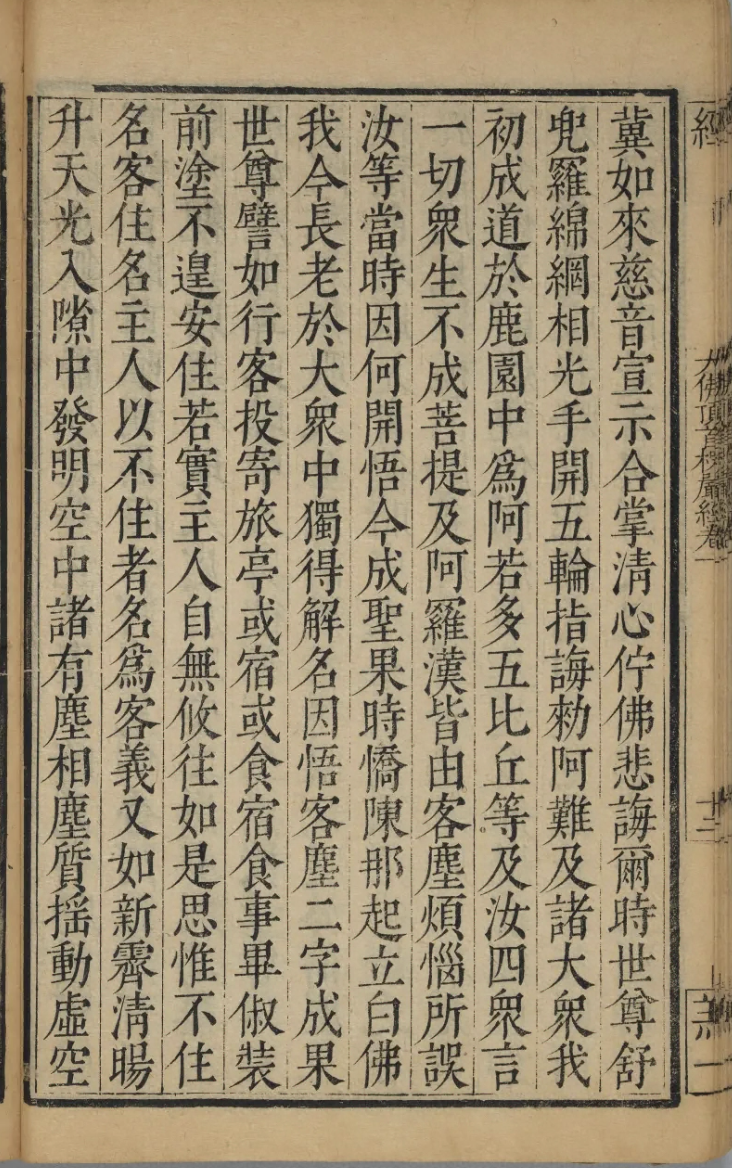 冀如來慈音宣示合掌清心佇佛悲誨爾時世尊舒
兜羅綿網相光手開五輪指誨勑阿難及諸大衆我
初成道於鹿園中爲阿若多五比丘等及汝四衆言
一切衆生不成菩提及阿羅漢皆由客塵煩惱所誤
汝等當時因何開悟今成聖果時憍陳那起立白佛
我今長老於大衆中獨得解名因悟客塵二字成果
世尊譬如行客投寄旅亭或宿或食宿食事畢俶裝
前塗不遑安住若實主人自無攸往如是思惟不住
名客住名主人以不住者名爲客義又如新霽清暘
升天光入隙中發明空中諸有塵相塵質揺動虛空